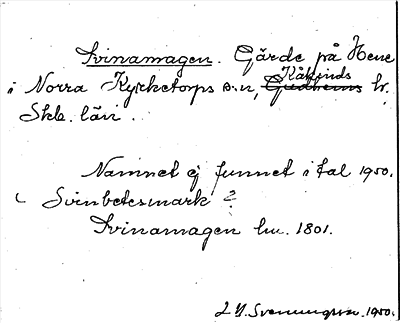 Svinamagen. Gärde på Hene
Kåkinds
i Norra Kyrketorps s:n, Gudhems hr.
Skb. län.
Namnet ej funnet i tal 1950.
Svinbetesmark?
Svinamagen lm. 1801.
Svenungsson. 1950.